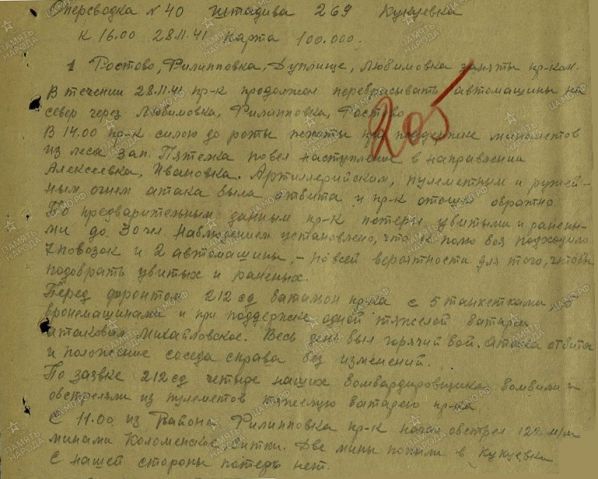 Оперсводка №40 штадива 269 Кукуевка
К 16.00 28.11.41 карта 100.000.
1. Ростово, Филипповка, Дуплище, Любимовка заняты пр-ком.
В течении 28.11.41 пр-к продолжал перебрасывать автомашины на
север через Любимовка, Филипповка, Ростово
В 14.00 пр-к силою до роты пехоты при поддержке минометов
из леса зап. Пятежка повел наступление в направлении
Алексеевка, Ивановка. Артиллерийским, пулеметным и ружей-
ным огнем атака была отбита и пр-к отошел обратно.
По предварительным данным пр-к потерял убитыми и ранены-
ми до 30 чел. Наблюдением установлено, что к полю боя подходило
7 повозок и 2 автомашины, - по всей вероятности для того, чтобы
подобрать убитых и раненых.
Перед фронтом 212 сд батальон пр-ка с 5 танкетками,
бронемашинами и при поддержке одной тяжелой батареи
атаковал Михайловское. Весь день был горячий бой. Атака отбита
и положение соседа справа без изменений.
По заявке 212 сд четыре наших бомбардировщика бомбили и
обстреляли из пулеметов тяжелую батарею пр-ка.
С 11.00 из района Филипповка пр-к начал обстрел 120 м/м
минами Коломенское, Ситки. Две мины попали в Кукуевка
С нашей стороны потерь нет.
205
ПАМЯТЬ НАРОДА